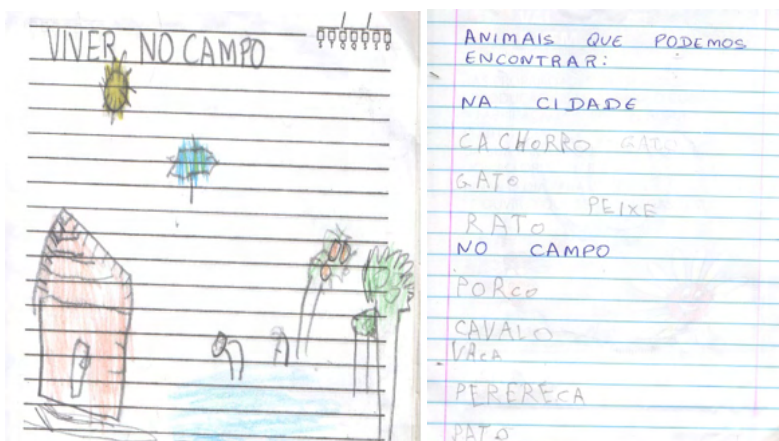 VIVER NO CAMPO
ANIMAIS QUE PODEMOS
ENCONTRAR:
NA CIDADE
CACHORRO GATO
GATO
PEIXE
RATO
NO CAMPO
PORCO
CAVALO
VACA
PERERECA
PATO